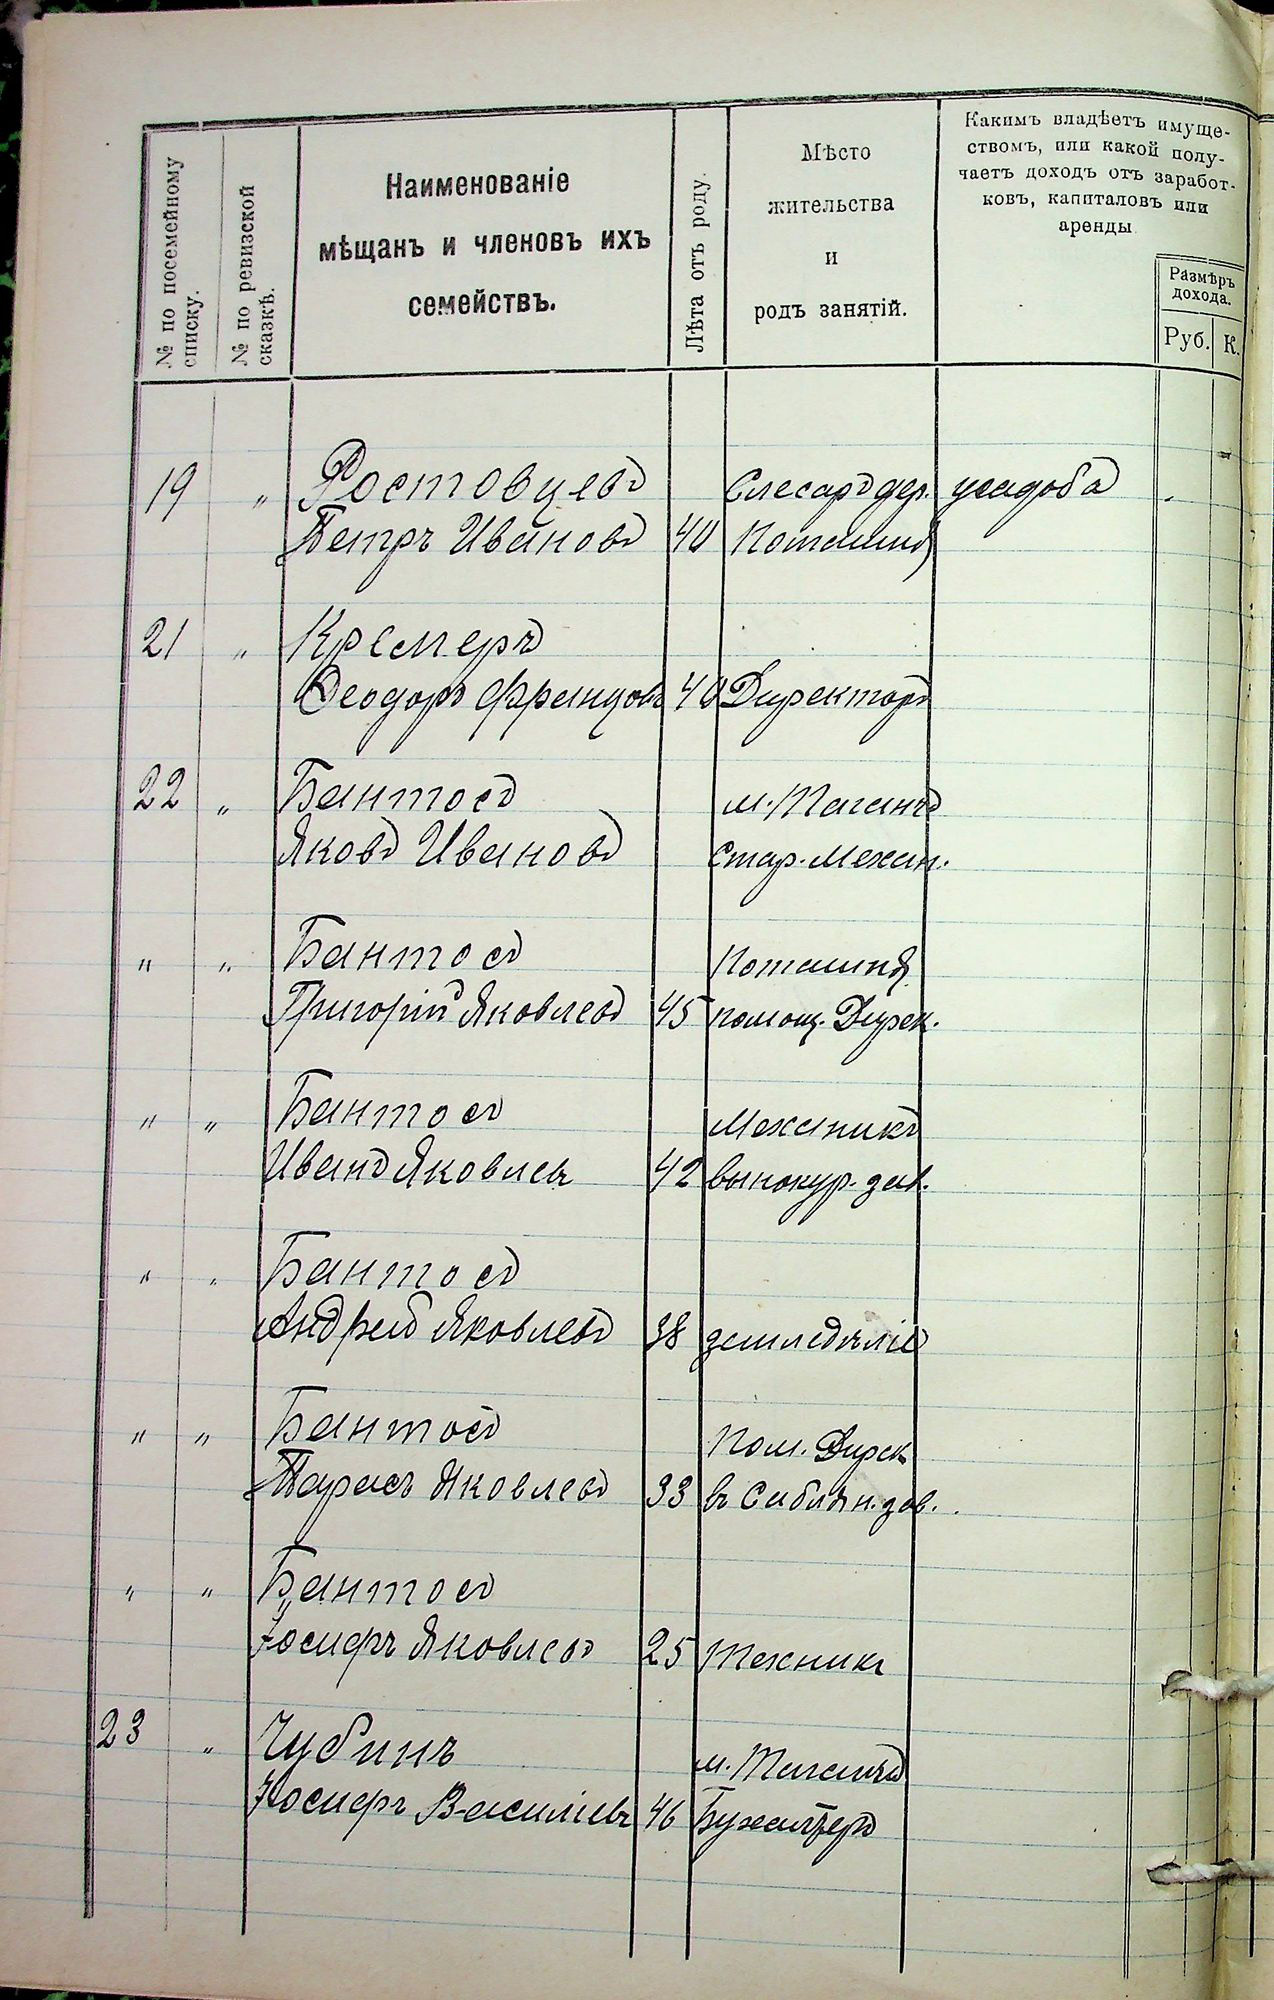 № по посемейному списку.
№ по ревизской сказкѣ.
Наименованіе
мѣщанъ и членовъ ихъ
семействъ.
Лѣта отъ роду.
Мѣсто
жительства
и
родъ занятій.
Какимъ владѣетъ имуще-
ствомъ, или какой полу-
чаетъ доходъ отъ заработ-
ковъ, капиталовъ или
аренды
Размѣръ
дохода.
Руб. К.
19 " Ростовцевъ Слесарь дер. усадьба
Петръ Ивановъ 40 Поташня
21 " Кремеръ
Ѳеодоръ Францовъ 40 Директоръ
22 " Бантосъ м. Таганча
Яковъ Ивановъ Стар. Механ.
" " Бантосъ Поташня
Григорій Яковлевъ 45 помощ. Дирек.
" " Бантосъ Механикъ
Иванъ Яковлев 42 винокур. зав.
" " Бантосъ
Андрей Яковлевъ 38 земледѣліе
" " Бантосъ Пом. Дирек
Тарасъ Яковлевъ 33 въ зав.
" " Бантосъ
Іосифъ Яковлевъ 25 Техникъ
23 " Чубинъ м. Таганча
Іосифъ Василіевъ 46 Бухгалтеръ